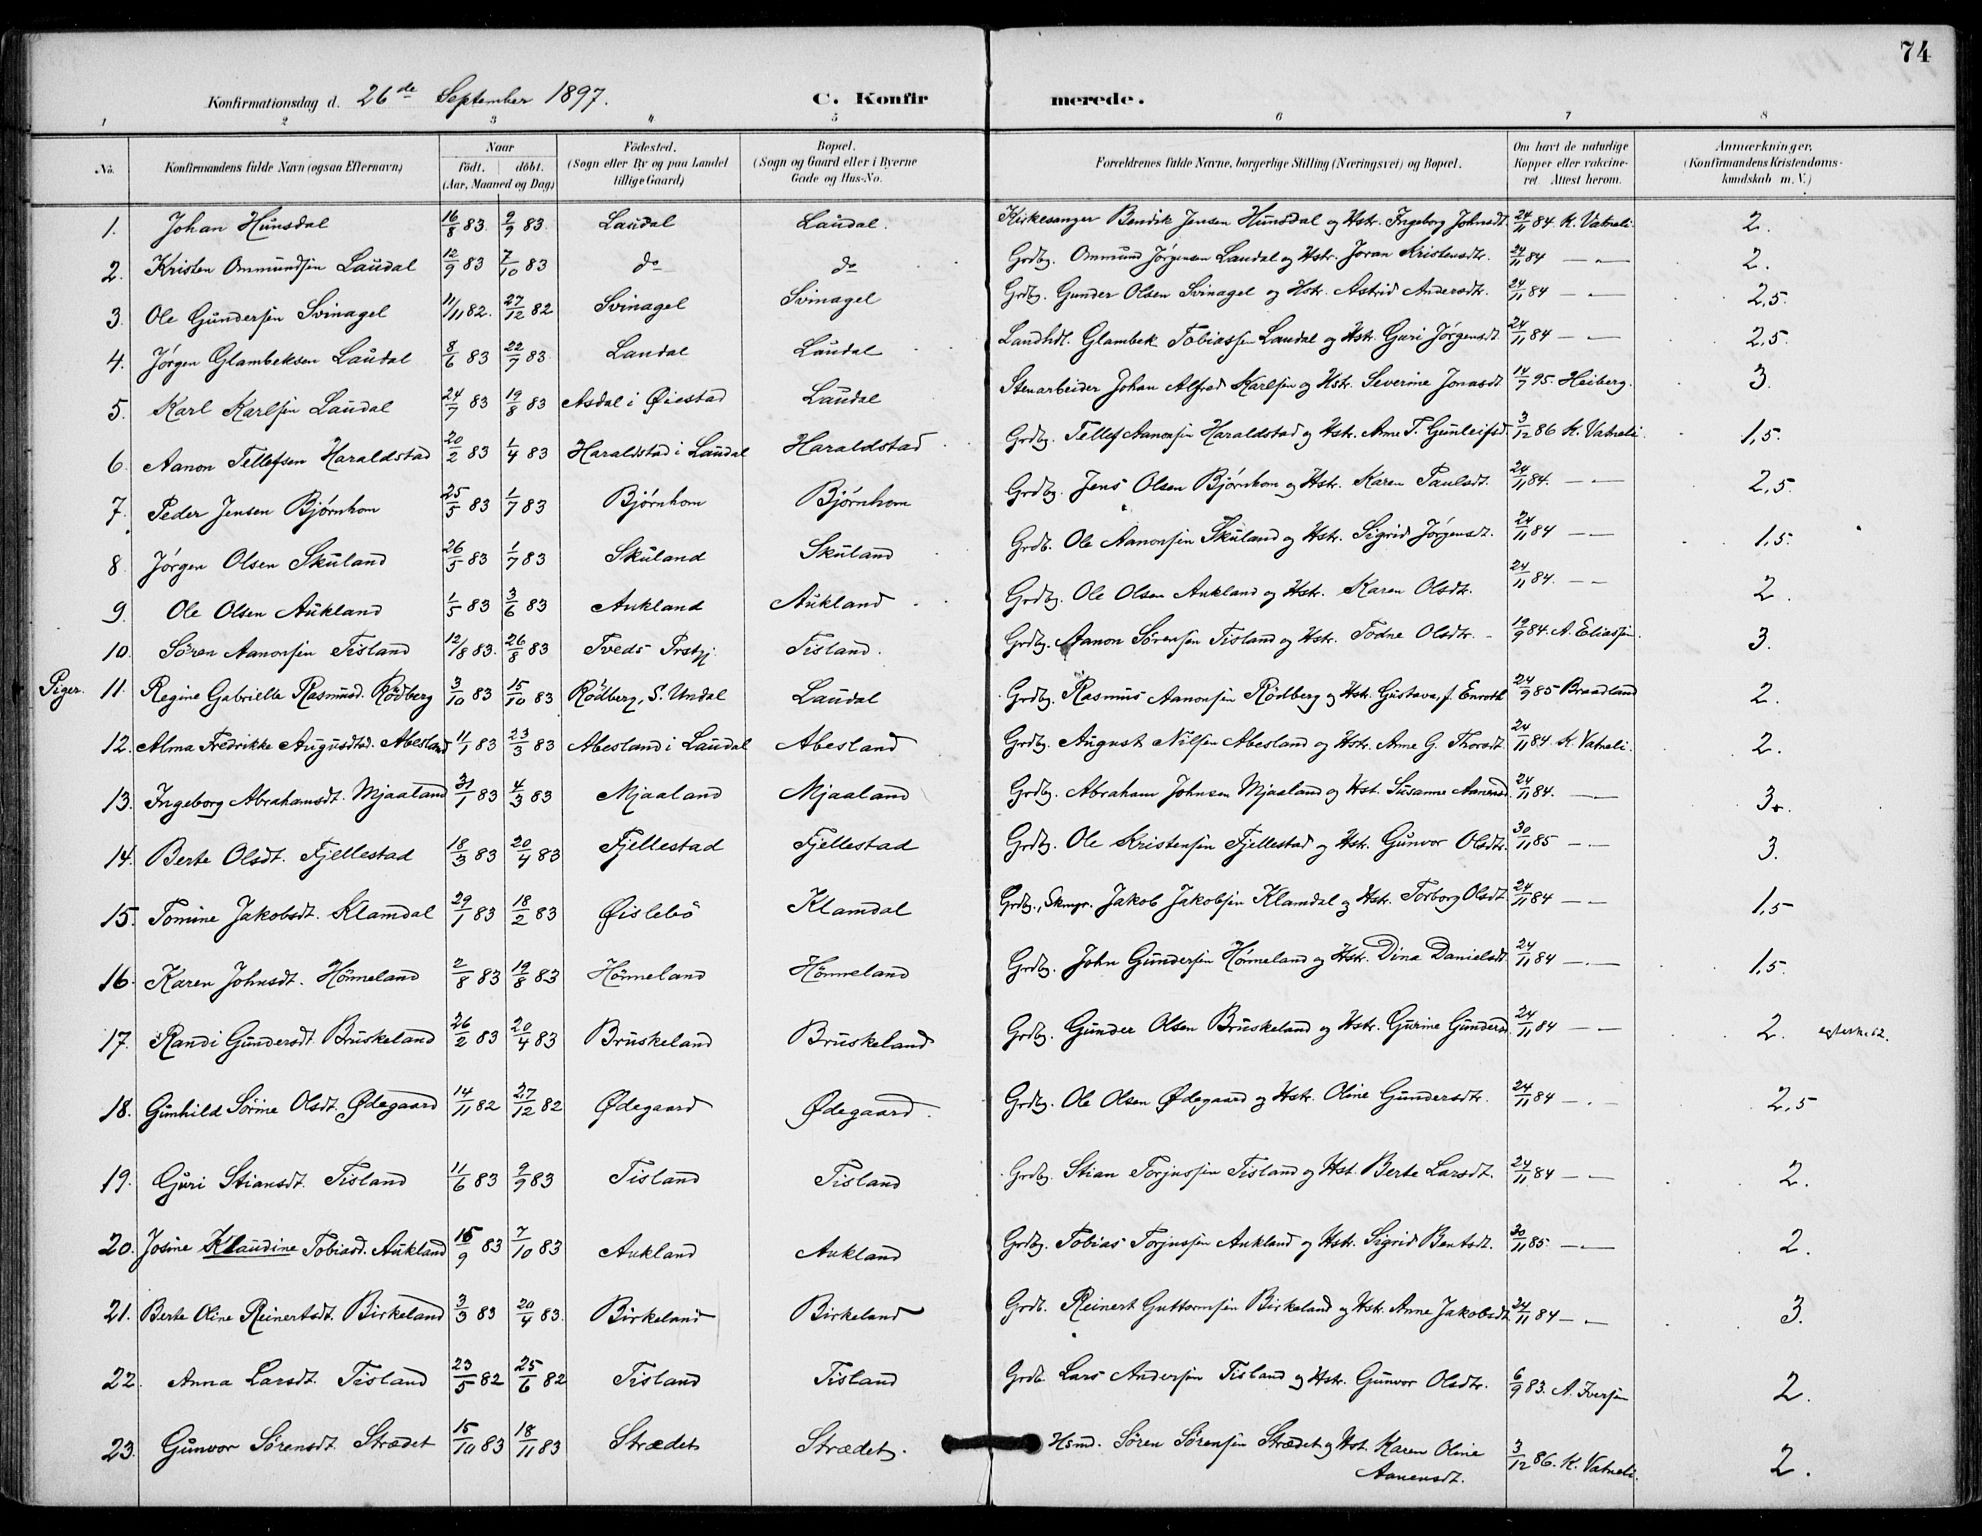 74
Konfirmationsdag d. 26de September 1897. C. Konfirmerede.
1 2 3 4 5 6 7 8
No. Konfirmandens fulde Navn (ogsaa Efternavn) Naar født. døbt. (Aar, Maaned og Dag) Fødested. (Sogn eller By og paa Landet tillige Gaard) Bopæl. (Sogn og Gaard eller i Byerne Gade og Hus-No. Forældrenes fulde Navne, borgerlige Stilling (Næringsvei) og Bopæl. Om havt de naturlige Kopper eller vakcineret. Attest herom. Anmærkninger, (Konfirmandens Kristendomskundskab m. V.)
1. Johan Hunsdal 16/8 83. 9/9 83. Laudal Laudal. Kirkesanger Bendik Jensen Hunsdal og Hstr. Ingeborg Johnsdt. 24/11 84 K. Vatneli. 2.
2. Kristen Ommundsen Laudal 12/9 83 7/10 83 do do Grdbg. Ommund Jørgensen Laudal og Hstr. Joran Kristensdtr. 24/11 84 — „ — 2.
3. Ole Gundersen Svinagel 11/11 82. 27/12 82 Svinagel Svinagel Grdbg. Gunder Olsen Svinagel og Hstr. Astrid Andersdtr. 24/11 84 — „ — 2,5.
4. Jørgen Glambeksen Laudal 8/6 83 22/7 83 Laudal Laudal Landhdl. Glambek Tobiassen Laudal og Hstr. Guri Jørgensdt. 24/11 84 — „ — 2,5.
5. Karl Karlsen Laudal 24/7 83 19/8 83 Asdal i Øiestad Laudal Stenarbeider Johan Alfred Karlsen og Hstr. Severine Jonasdt 14/7 95. Heiberg. 3.
6. Aanon Tellefsen Haraldstad 20/2 83 1/4 83 Haraldstad i Laudal Haraldstad Grdbg. Tellef Aanonsen Haraldstad og Hstr. Anne T. Gunleifsd. 3/12 86 K. Vatneli. 1,5.
7. Peder Jensen Bjørnhom 25/5 83 1/7 83 Bjørnhom Bjørnhom Grdbg. Jens Olsen Bjørnhom og Hstr. Karen Paulsdt. 24/11 84. — „ — 2,5.
8 Jørgen Olsen Skuland 26/5 83 1/7 83 Skuland Skuland Grdb. Ole Aanonsen Skuland og Hstr. Sigrid Jørgensdt. 24/11 84 — „ — 1,5.
9. Ole Olsen Aukland 1/5 83 3/6 83 Aukland Aukland Grdbg. Ole Olsen Aukland og Hstr. Karen Olsdtr. 24/11 84. — „ — 2.
10. Søren Aanonsen Tisland 12/8 83. 26/8 83 Tveds Prstgj. Tisland. Grdbg. Aanon Sørensen Tisland og Hstr. Todne Olsdtr. 19/9 84. A. Eliassen. 3.
Piger. 11. Regine Gabrielle Rasmusd. Rödberg 3/10 83 15/10 83 Rödberg, S. Undal Laudal Grdbg. Rasmus Aanonsen Rödberg og Hstr. Gustava, f. Enroth 24/9 85 Braadland 2.
12. Alma Fredrikke Augustdtd. Abesland 11/1 83 23/3 83 Abesland i Laudal Abesland Grdbg. August Nilsen Abesland og Hstr. Anne G. Thorsdt 24/11 84. K. Vatneli. 2.
13. Ingeborg Abrahamsdt. Mjaaland 31/1 83 4/3 83 Mjaaland Mjaaland Grdbg. Abraham Johnsen Mjaaland og Hst. Susanne Aanensd. 24/11 84. — „ — 3.
14. Berte Olsdt. Fjellestad 18/3 83 20/4 83 Fjellestad Fjellestad Grdbg. Ole Kristensen Fjellestad og Hstr. Gunvor Olsdtr. 30/11 85 — „ — 3.
15. Tomine Jakobsdt. Klamdal 29/1 83 18/2 83 Øislebö Klamdal Grdbg., Skmgr. Jakob Jakobsen Klamdal og Hstr. Torborg Olsdt. 24/11 84 — „ — 1,5
16. Karen Johnsdt. Hönneland 2/8 83 19/8 83 Hönneland Hönneland Grdbg. John Gundersen Hönneland og Hstr. Dina Danielsdt 24/11 84 — „ — 1,5.
17. Randi Gundersdt. Bruskeland 26/2 83 20/4 83 Bruskeland Bruskeland Grdbg. Gunder Olsen Bruskeland og Hstr. Gurine Gundersd. 24/11 84 — „ — 2.
18. Gunhild Sörine Olsdt. Ødegaard 14/11 82 27/12 82 Ødegaard Ødegaard. Grdbg. Ole Olsen Ødegaard og Hstr. Oline Gundersdtr. 24/11 84 — „ — 2,5
19. Guri Stiansdt. Tisland 11/6 83 9/9 83 Tisland Tisland Grdbg. Stian Torjussen Tisland og Hst. Berte Larsdt. 24/11 84 — „ — 2.
20. Josine Klaudine Tobiasd. Aukland 15/9 83 7/10 83 Aukland Aukland Grdbg. Tobias Torjussen Aukland og Hstr. Sigrid Bentsdt. 30/11 85. — „ — 2.
21. Berte Oline Reinertsdt. Birkeland 3/3 83 20/4 83. Birkeland Birkeland Grdb. Reinert Guttormsen Birkeland og Hstr. Anne Jakobsdt. 24/11 84 — „ — 3.
22. Anna Larsdt. Tisland 23/5 82 25/6 82 Tisland Tisland Grdb. Lars Andersen Tisland og Hstr. Gunvor Olsdtr. 6/9 83. A. Iversen 2.
23. Gunvor Sörensdt. Strædet 15/10 83 18/11 83 Strædet Strædet. Hsmd. Sören Sörensen Strædet og Hst. Karen Oline Aanensdt. 3/12 86. K. Vatneli. 2.